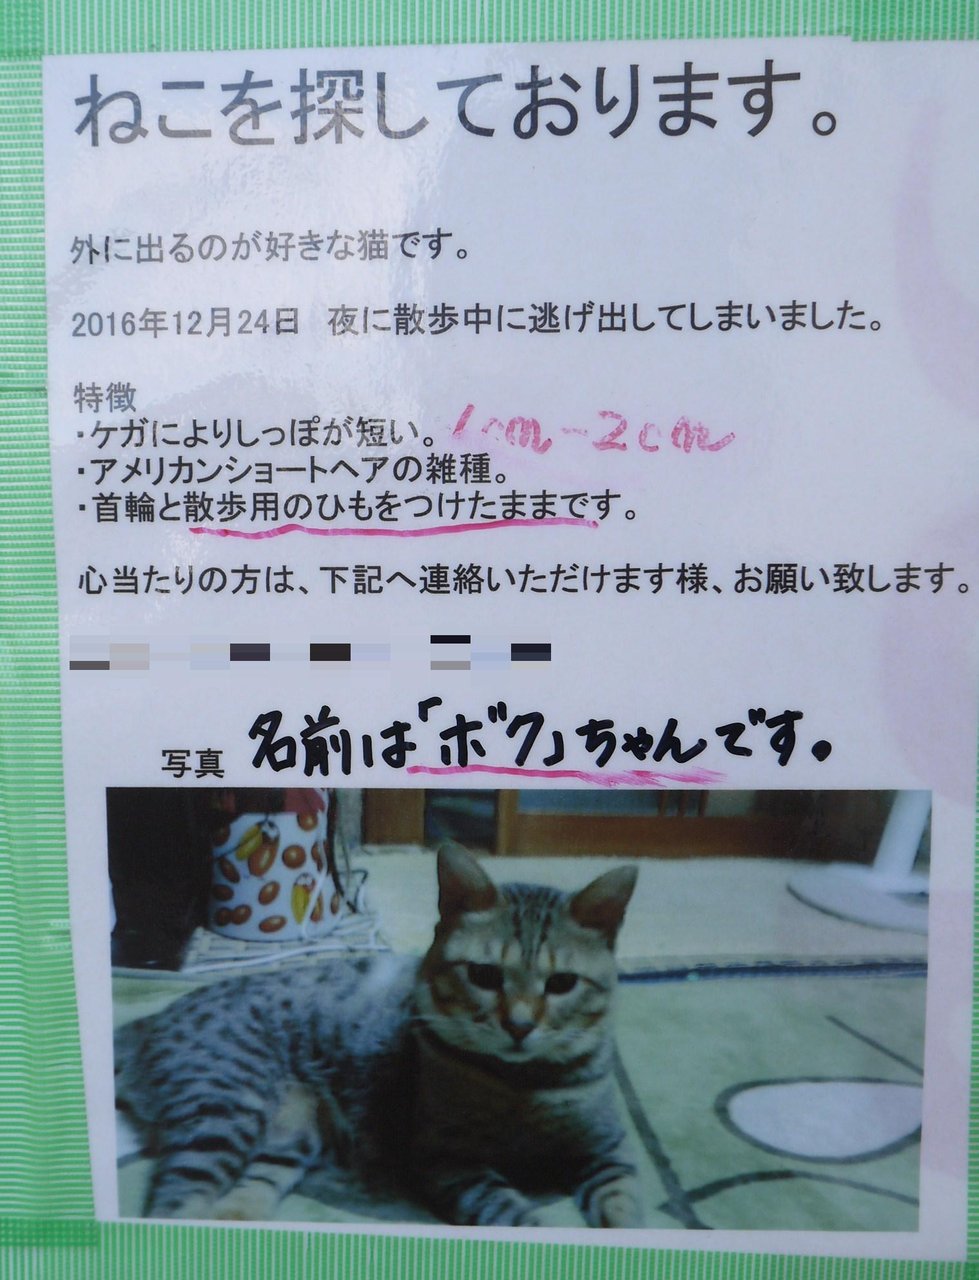 ねこを探しております。
外に出るのが好きな猫です。
2016年12月24日　夜に散歩中に逃げ出してしまいました。
特徴
・ケガによりしっぽが短い。 1cm-2cm
・アメリカンショートヘアの雑種。
・首輪と散歩用のひもをつけたままです。
心当たりの方は、下記へ連絡いただけます様、お願い致します。
写真 名前は「ボク」ちゃんです。